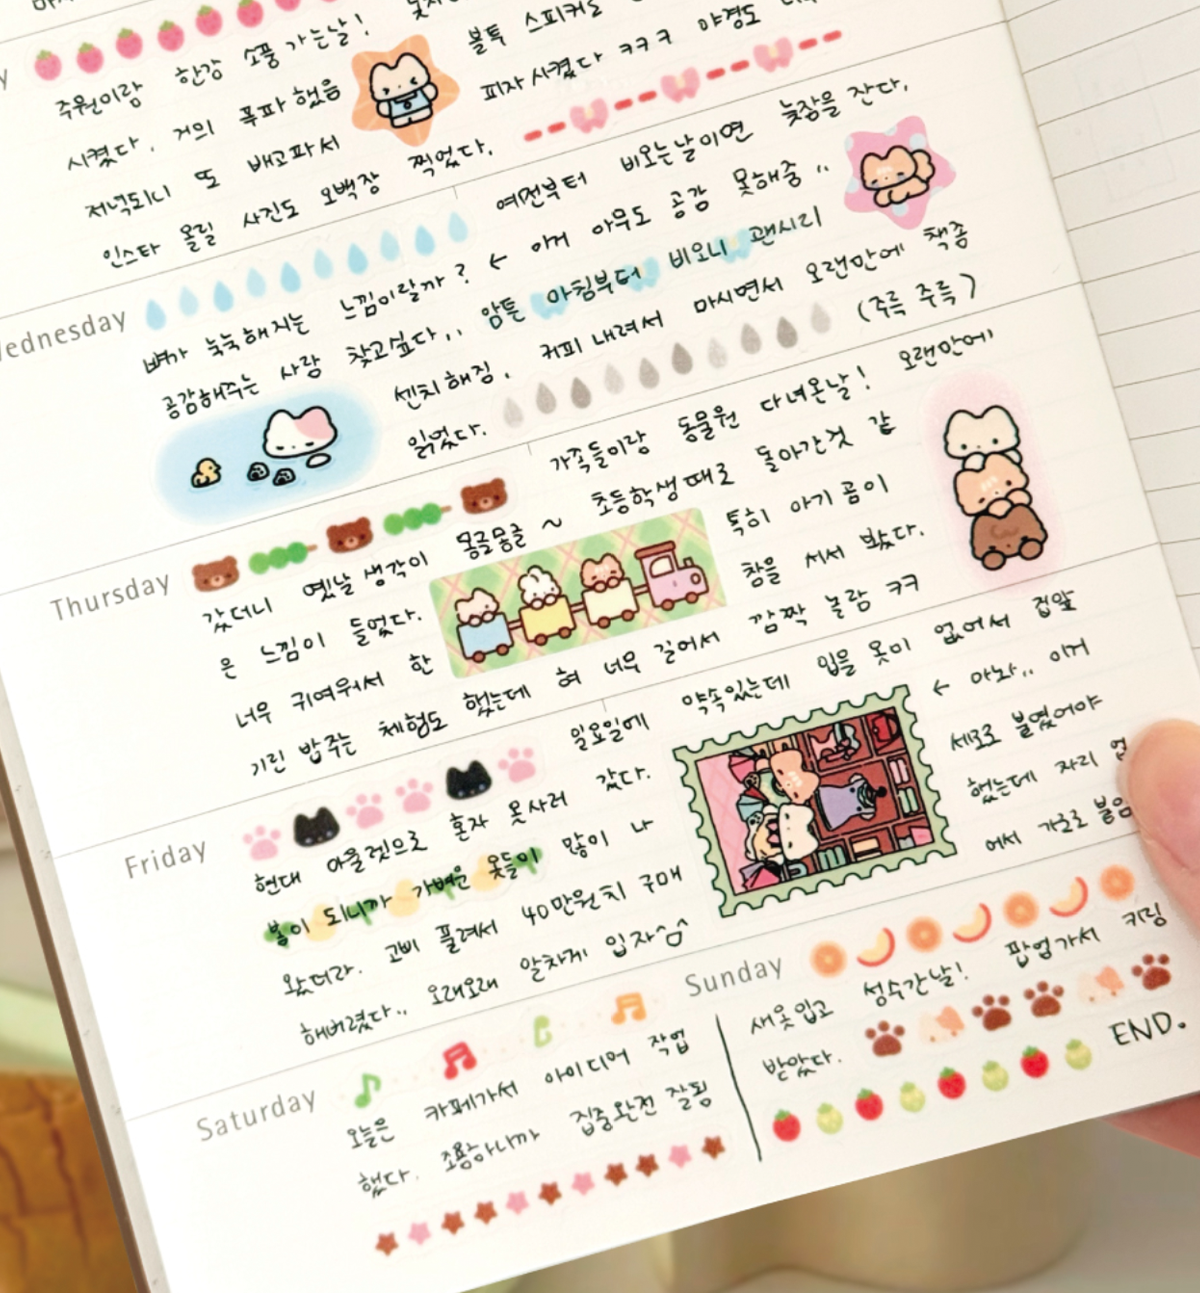 주원이랑 한강 소풍 가는날!
시켰다. 거의 폭파했음
저녁되니 또 배고파서
인스타 올릴 사진도 오백장 찍었다.
블톡 스피커로
피자 시켰다 ㅋㅋㅋ 야경도
Wednesday
여면부터 비오는날이면 늦잠을 잔다.
벼가 눅눅해지는 느낌이랄까? ← 이거 아무도 공감 못해줌..
공감해주는 사람 찾고싶다.. 암튼 아침부터 비오니 괜시리
센치해짐. 커피 내려서 마시면서 오랜만에 책좀
읽었다. (주륵 주륵)
Thursday
가족들이랑 동물원 다녀온날! 오랜만에
갔더니 옛날 생각이 몽글몽글 ~ 초등학생때로 돌아간것 같
은 느낌이 들었다. 특히 아기곰이
너무 귀여워서 한 참을 서서 봤다.
기린 밥주는 체험도 했는데 혀 너무 길어서 깜짝 놀람 ㅋㅋ
Friday
일요일에 약속있는데 입을 옷이 없어서 집앞
현대 아울렛으로 혼자 옷사러 갔다.
봄이 되니까 가벼운 옷들이 많이 나
왔더라. 고삐 풀려서 40만원치 구매
해버렸다.. 오래오래 알차게 입자^^
← 아놔.. 이거
세로로 붙였어야
했는데 자리 없
어서 가로로 붙임
Saturday
오늘은 카페가서 아이디어 작업
했다. 조용하니까 집중완전 잘됨
Sunday
새옷입고 성수간날! 팝업가서 키링
받았다.
END.